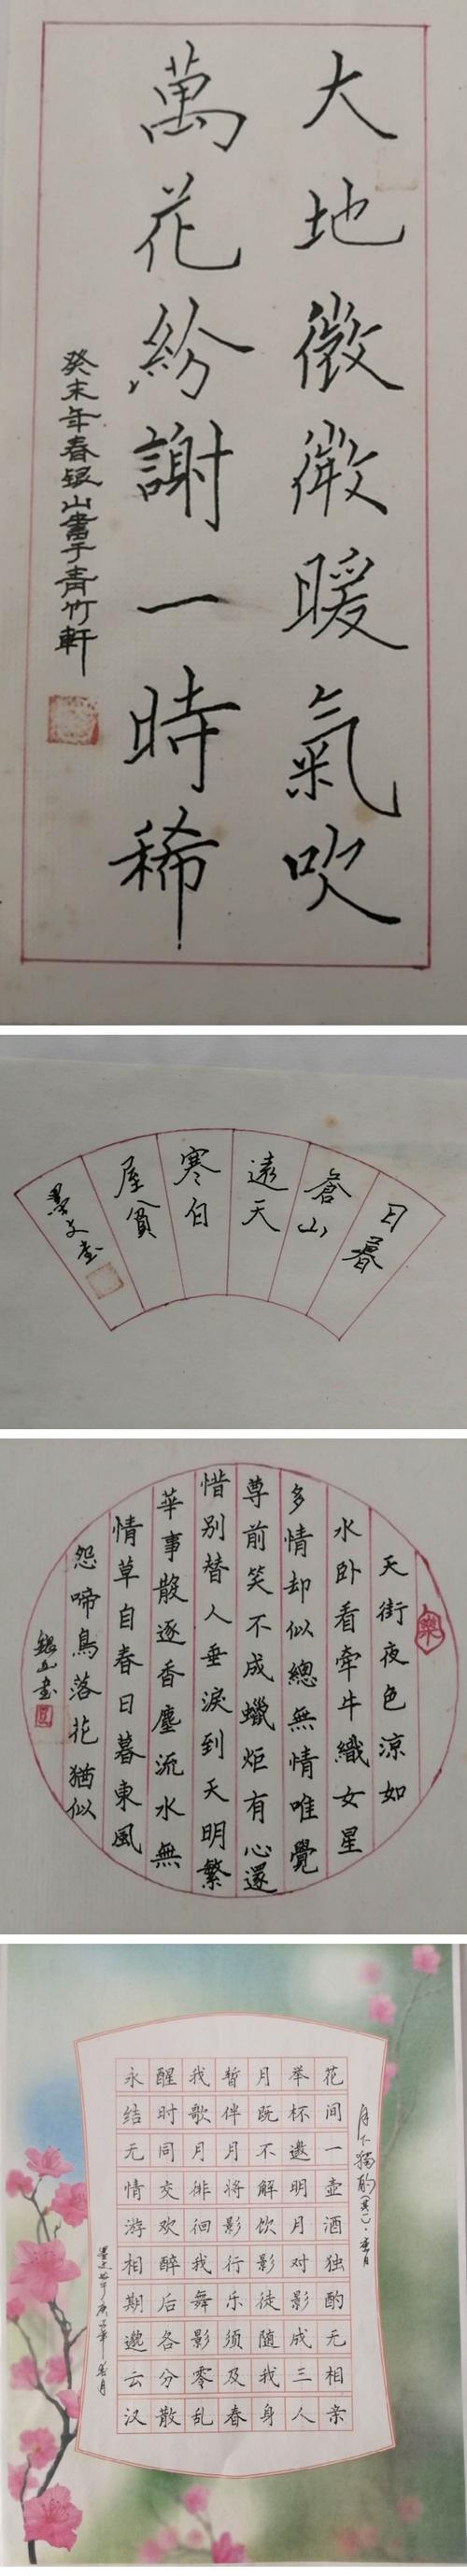 大地微微暖氣吹
萬花紛謝一時稀
癸未年春银山書于青竹軒
日暮
蒼山
遠天
寒白
屋貧
墨文書
天街夜色涼如
水卧看牽牛織女星
多情却似總無情唯覺
尊前笑不成蠟炬有心還
惜别替人垂淚到天明繁
華事散逐香塵流水無
情草自春日暮東風
怨啼鳥落花猶似
銀山書
月下獨酌(其一)·李白
花间一壶酒独酌无相亲
举杯邀明月对影成三人
月既不解饮影徒随我身
暂伴月将影行乐须及春
我歌月徘徊我舞影零乱
醒时同交欢醉后各分散
永结无情游相期邈云汉